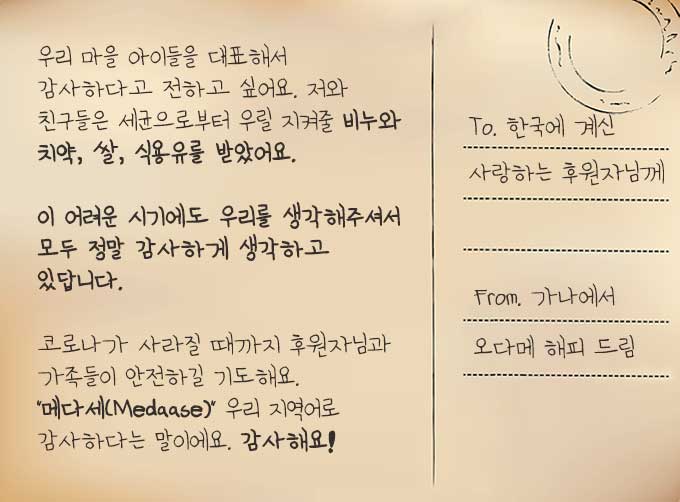 우리 마을 아이들을 대표해서
감사하다고 전하고 싶어요. 저와
친구들은 세균으로부터 우릴 지켜줄 비누와
치약, 쌀, 식용유를 받았어요.
이 어려운 시기에도 우리를 생각해주셔서
모두 정말 감사하게 생각하고
있답니다.
코로나가 사라질 때까지 후원자님과
가족들이 안전하길 기도해요.
"메다세(Medaase)" 우리 지역어로
감사하다는 말이에요. 감사해요!
To. 한국에 계신
사랑하는 후원자님께
From. 가나에서
오다메 해피 드림